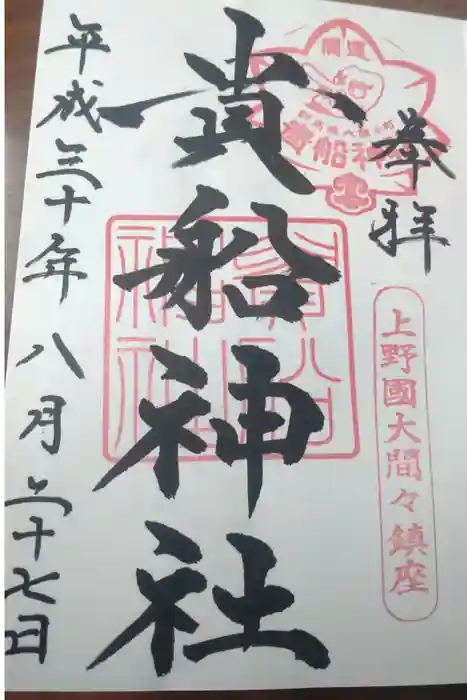 奉拝
上野國大間々鎮座
開運
貴船神社
貴船神社
平成三十年八月二十七日